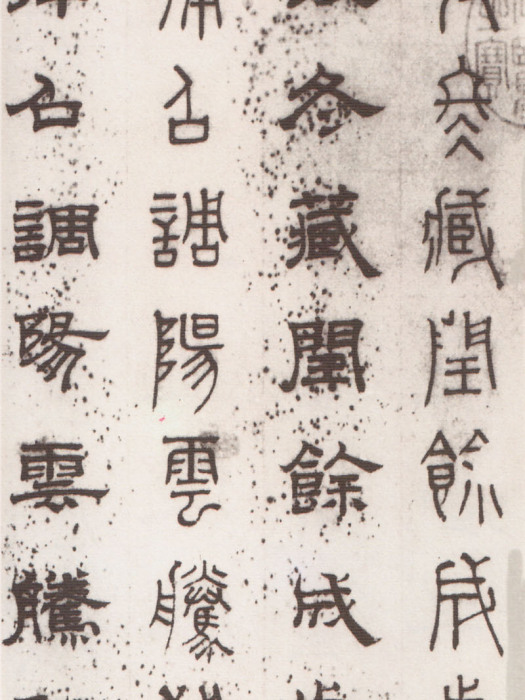 冬藏閏餘成
冬藏閏餘成
召調陽雲騰
召調陽雲騰